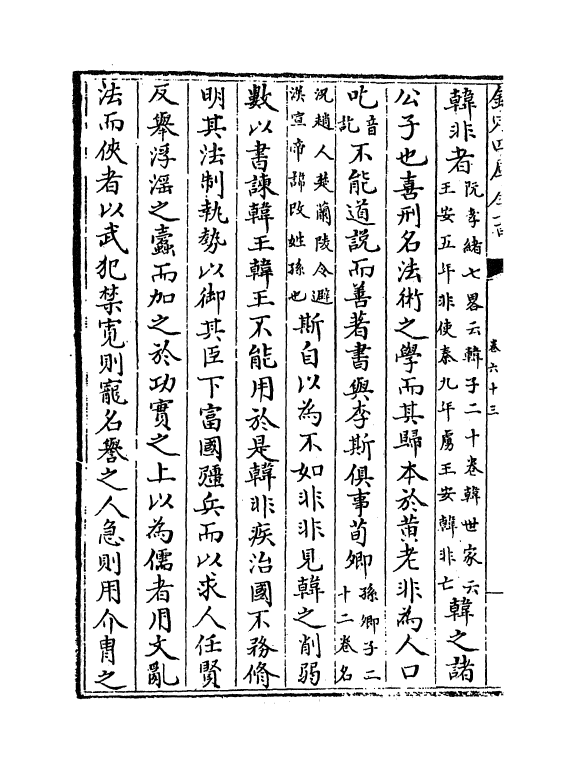 欽定四庫全書
卷六十三
韓非者阮孝緒七畧云韓子二十卷韓世家云王安五年非使秦九年虜王安韓非亡韓之諸
公子也喜刑名法術之學而其歸本於黄老非為人口
吃音訖不能道説而善著書與李斯俱事荀卿孫卿子二十二卷名
况趙人楚蘭陵令避漢宣帝諱改姓孫也斯自以為不如非非見韓之削弱
數以書諫韓王韓王不能用於是韓非疾治國不務脩
明其法制執勢以御其臣下富國彊兵而以求人任賢
反舉浮滛之蠹而加之於功實之上以為儒者用文亂
法而俠者以武犯禁寛則寵名譽之人急則用介胄之